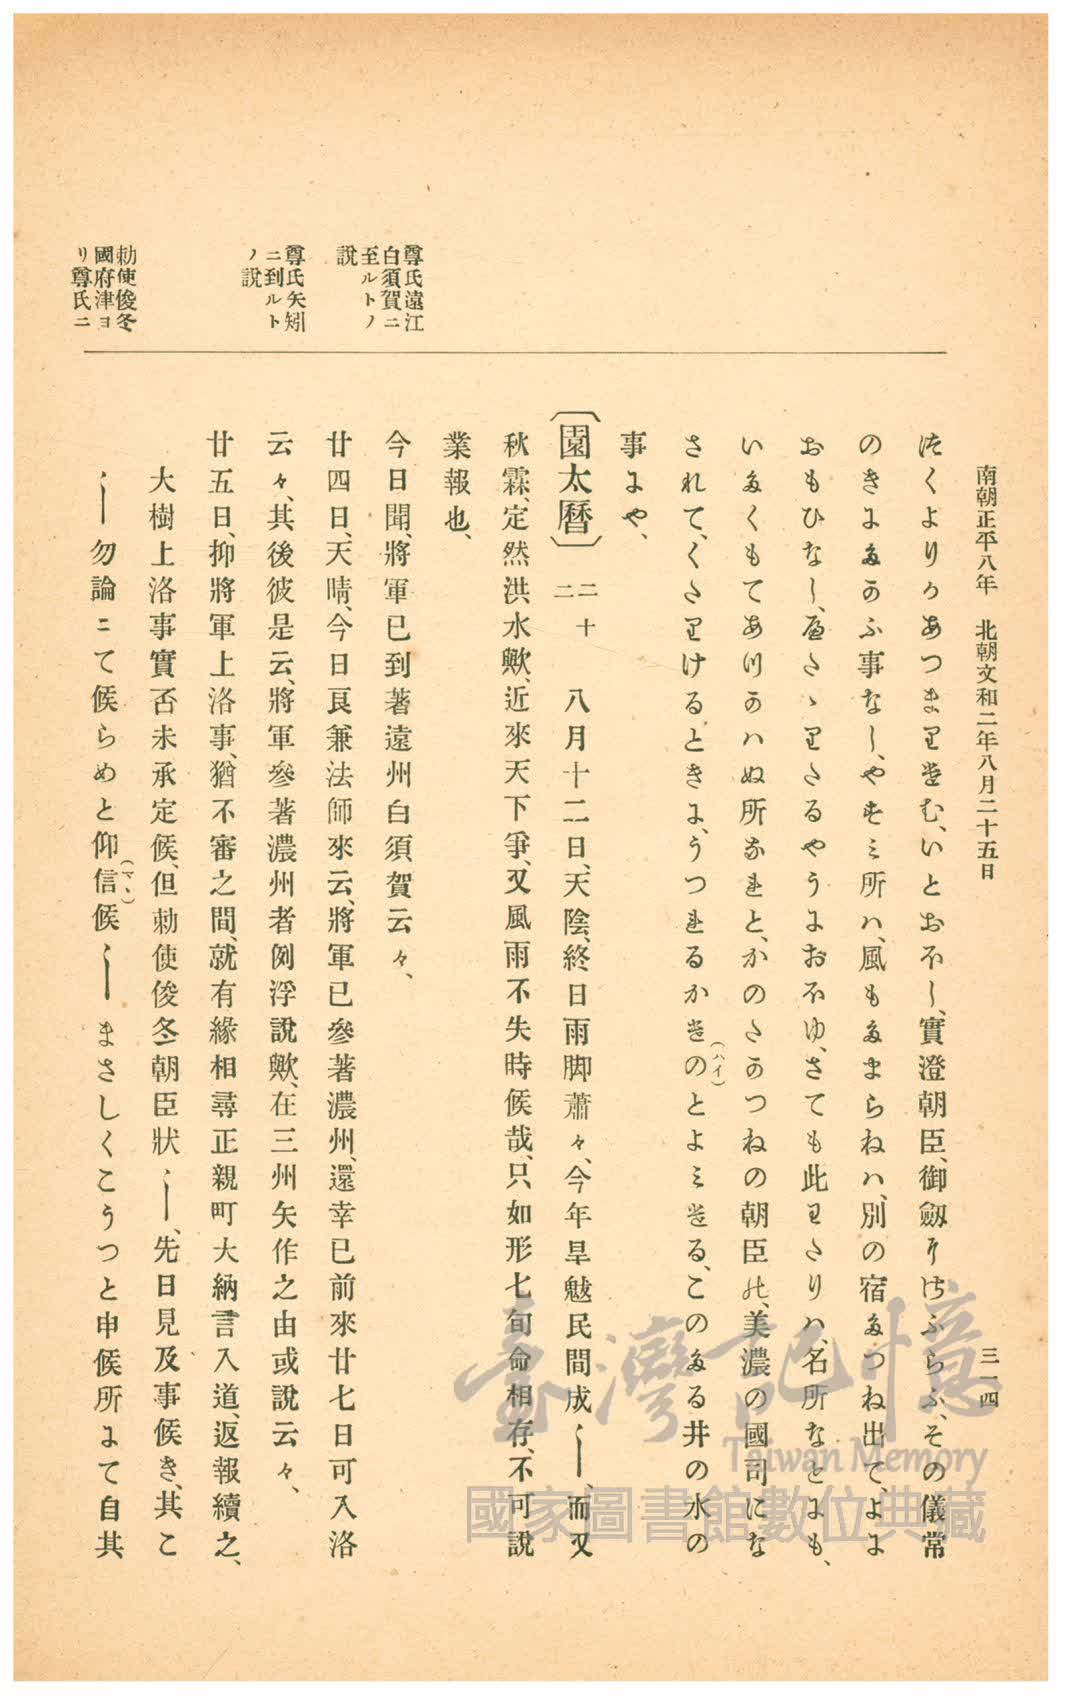 南朝正平八年　北朝文和二年八月二十五日
三一四
つくよりのあつまりせむ、いとおほし、實澄朝臣、御劔そはふらふ、その儀常
のきにたのふ事なし、やすミ所ハ、風もたまらねハ、別の宿たつね出て、よに
おもひなし、たゝりさるやうにおほゆ、さても此わたりハ、名所なとにも、
いたくもてありのハぬ所なれと、かのたのつねの朝臣の、美濃の國司にな
されて、くたりけるときに、うつれるかせのとよミせる、このたる井の水の
(ハイ)
事にや、
〔園太曆〕二十二　八月十二日、天陰、終日雨脚蕭々、今年旱魃民間成〳〵、而又
秋霖、定然洪水歟、近來天下爭、又風雨不失時候哉、只如形七旬命相存、不可說
業報也、
今日聞、將軍已到著遠州白須賀云々、
廿四日、天晴、今日良兼法師來云、將軍已參著濃州、還幸已前來廿七日可入洛
云々、其後彼是云、將軍參著濃州者例浮說歟、在三州矢作之由或說云々、
廿五日、抑將軍上洛事、猶不審之間、就有緣相尋正親町大納言入道、返報續之、
大樹上洛事實否未承定候、但勅使俊冬朝臣狀〳〵、先日見及事候き、其こ
〳〵勿論ニて候らめと仰信候〳〵まさしくこうつと申候所にて自其
(マヽ)
尊氏遠江
白須賀ニ
至ルトノ
說
尊氏矢矧
ニ到ルト
ノ說
勅使俊冬
國府津ヨ
リ尊氏ニ
臺灣記憶
Taiwan Memory
國家圖書館數位典藏